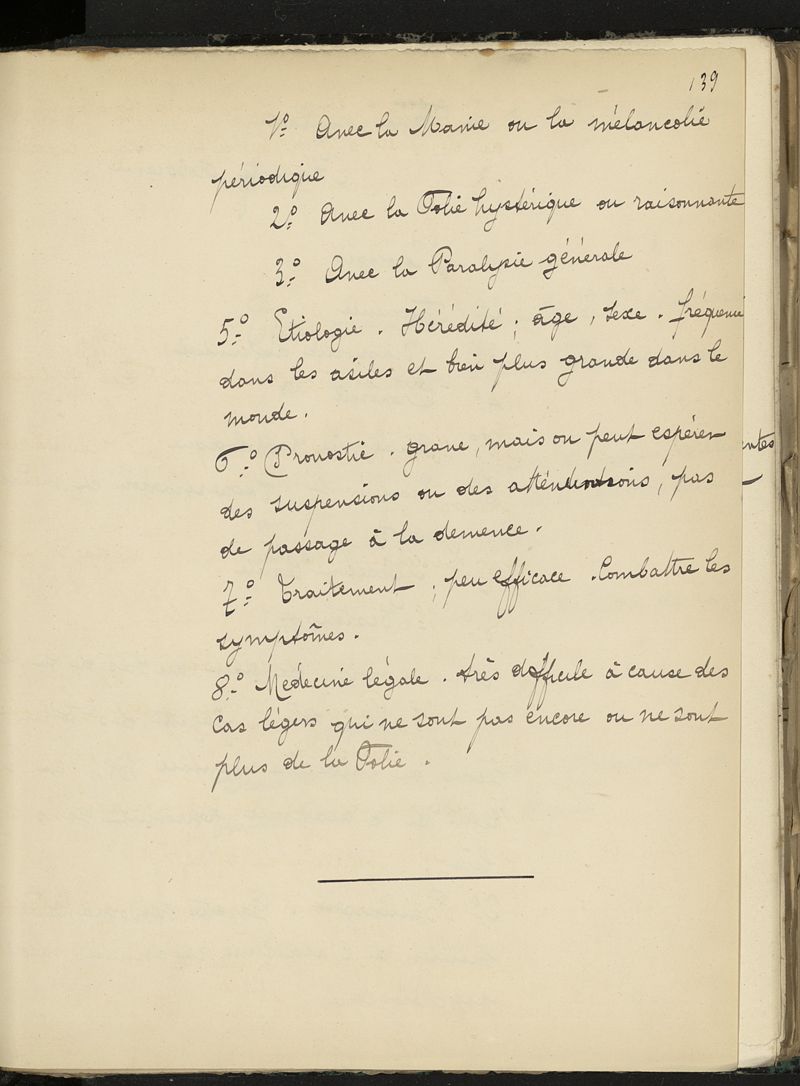 139
1º Avec la Manie ou la mélancolie
périodique
2º Avec la Folie hystérique ou raisonnante
3º Avec la Paralysie générale
5º Etiologie. Hérédité; âge, sexe. fréquence
dans les asiles et bien plus grande dans le
monde.
6º Pronostic. grave, mais on peut espérer
des suspensions ou des atténuations, pas
de passage à la demence.
7º Traitement; peu efficace. Combattre les
symptômes.
8º Medecine légale. très difficile à cause des
Cas légers qui ne sont pas encore ou ne sont
plus de la Folie.